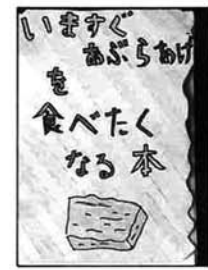 いますぐ
あぶらあげ
を
食べたく
なる本